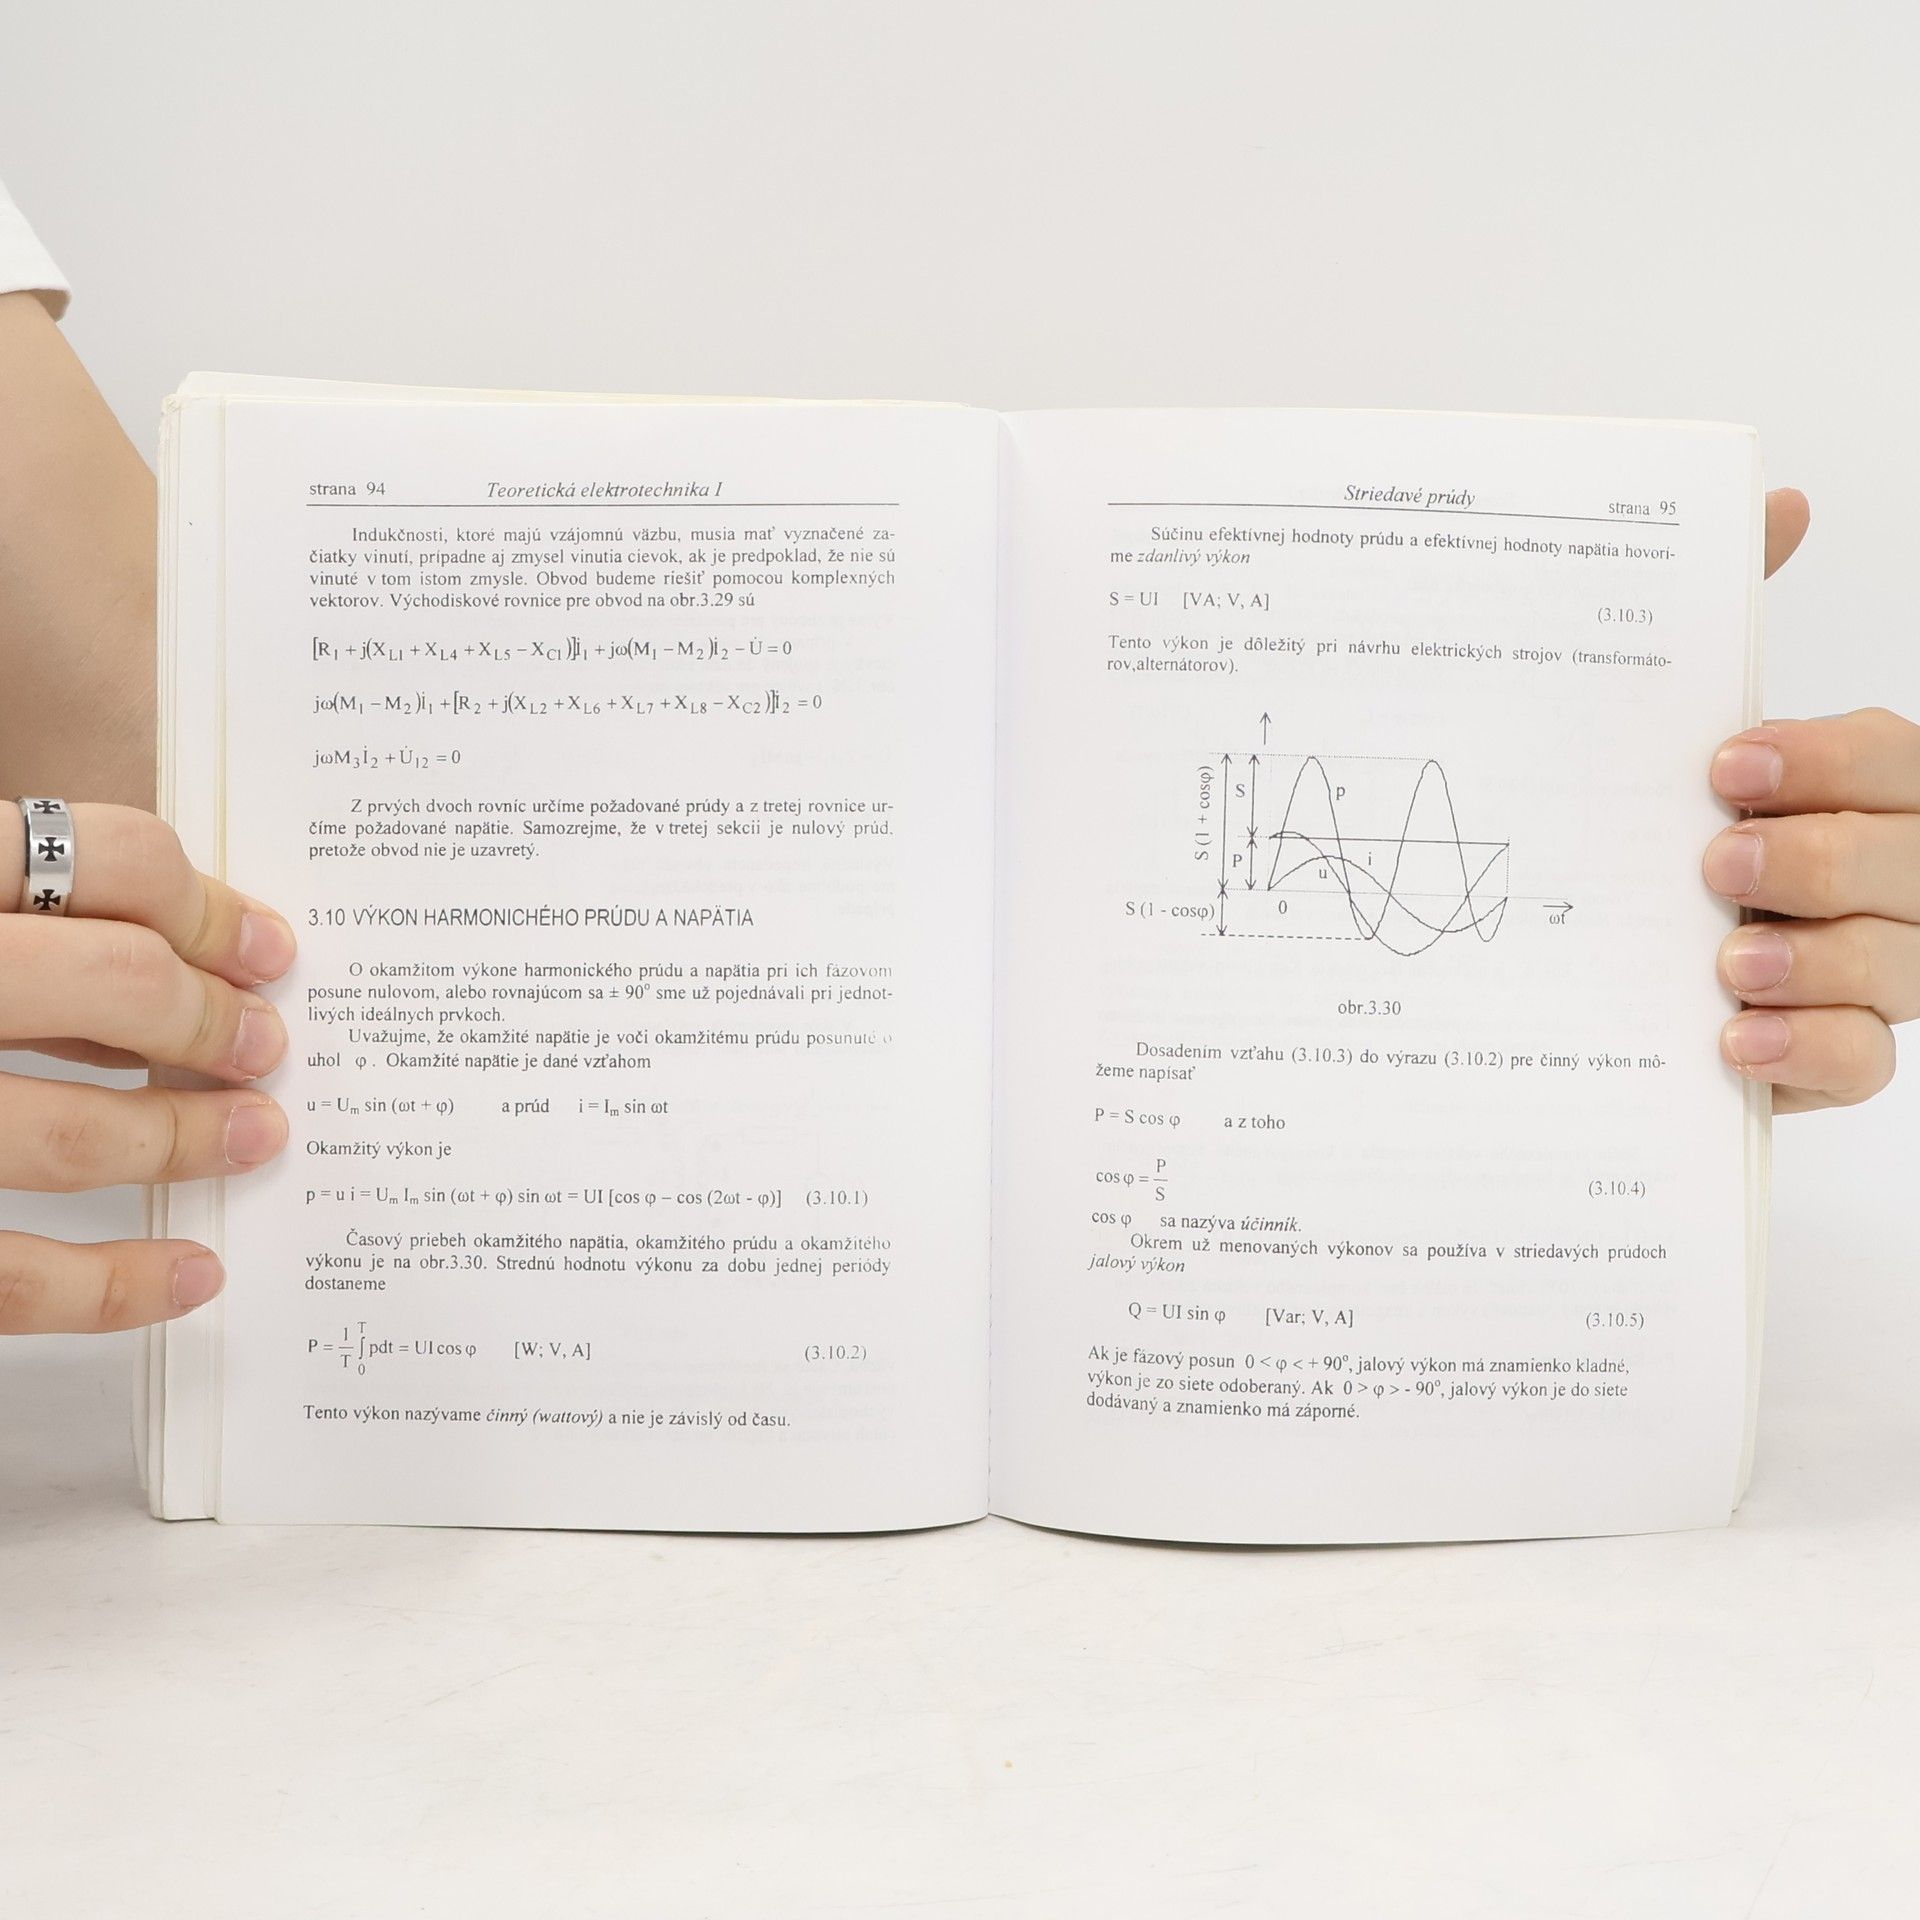 strana 94 Teoretická elektrotechnika I
Indukčnosti, ktoré majú vzájomnú väzbu, musia mať vyznačené za-
čiatky vinutí, prípadne aj zmysel vinutia cievok, ak je predpoklad, že nie sú
vinuté v tom istom zmysle. Obvod budeme riešiť pomocou komplexných
vektorov. Východiskové rovnice pre obvod na obr.3.29 sú
[R₁ + j(X_L1 + X_L4 + X_L5 − X_C1)]İ₁ + jω(M₁ − M₂)İ₂ − U̇ = 0
jω(M₁ − M₂)İ₁ + [R₂ + j(X_L2 + X_L6 + X_L7 + X_L8 − X_C2)]İ₂ = 0
jωM₃İ₂ + U̇₁₂ = 0
Z prvých dvoch rovníc určíme požadované prúdy a z tretej rovnice ur-
číme požadované napätie. Samozrejme, že v tretej sekcii je nulový prúd,
pretože obvod nie je uzavretý.
3.10 VÝKON HARMONICHÉHO PRÚDU A NAPÄTIA
O okamžitom výkone harmonického prúdu a napätia pri ich fázovom
posune nulovom, alebo rovnajúcom sa ± 90° sme už pojednávali pri jednot-
livých ideálnych prvkoch.
Uvažujme, že okamžité napätie je voči okamžitému prúdu posunuté o
uhol φ . Okamžité napätie je dané vzťahom
u = Uₘ sin (ωt + φ) a prúd i = Iₘ sin ωt
Okamžitý výkon je
p = u i = Uₘ Iₘ sin (ωt + φ) sin ωt = UI [cos φ – cos (2ωt - φ)] (3.10.1)
Časový priebeh okamžitého napätia, okamžitého prúdu a okamžitého
výkonu je na obr.3.30. Strednú hodnotu výkonu za dobu jednej periódy
dostaneme
P = 1/T ∫₀ᵀ pdt = UI cos φ [W; V, A] (3.10.2)
Tento výkon nazývame činný (wattový) a nie je závislý od času.
Striedavé prúdy strana 95
Súčinu efektívnej hodnoty prúdu a efektívnej hodnoty napätia hovorí-
me zdanlivý výkon
S = UI [VA; V, A] (3.10.3)
Tento výkon je dôležitý pri návrhu elektrických strojov (transformáto-
rov,alternátorov).
S (1 + cosφ)
S
p
P
i
u
S (1 - cosφ)
0
ωt
obr.3.30
Dosadením vzťahu (3.10.3) do výrazu (3.10.2) pre činný výkon mô-
žeme napísať
P = S cos φ a z toho
cos φ = P/S (3.10.4)
cos φ sa nazýva účinník.
Okrem už menovaných výkonov sa používa v striedavých prúdoch
jalový výkon
Q = UI sin φ [Var; V, A] (3.10.5)
Ak je fázový posun 0 < φ < + 90°, jalový výkon má znamienko kladné,
výkon je zo siete odoberaný. Ak 0 > φ > - 90°, jalový výkon je do siete
dodávaný a znamienko má záporné.